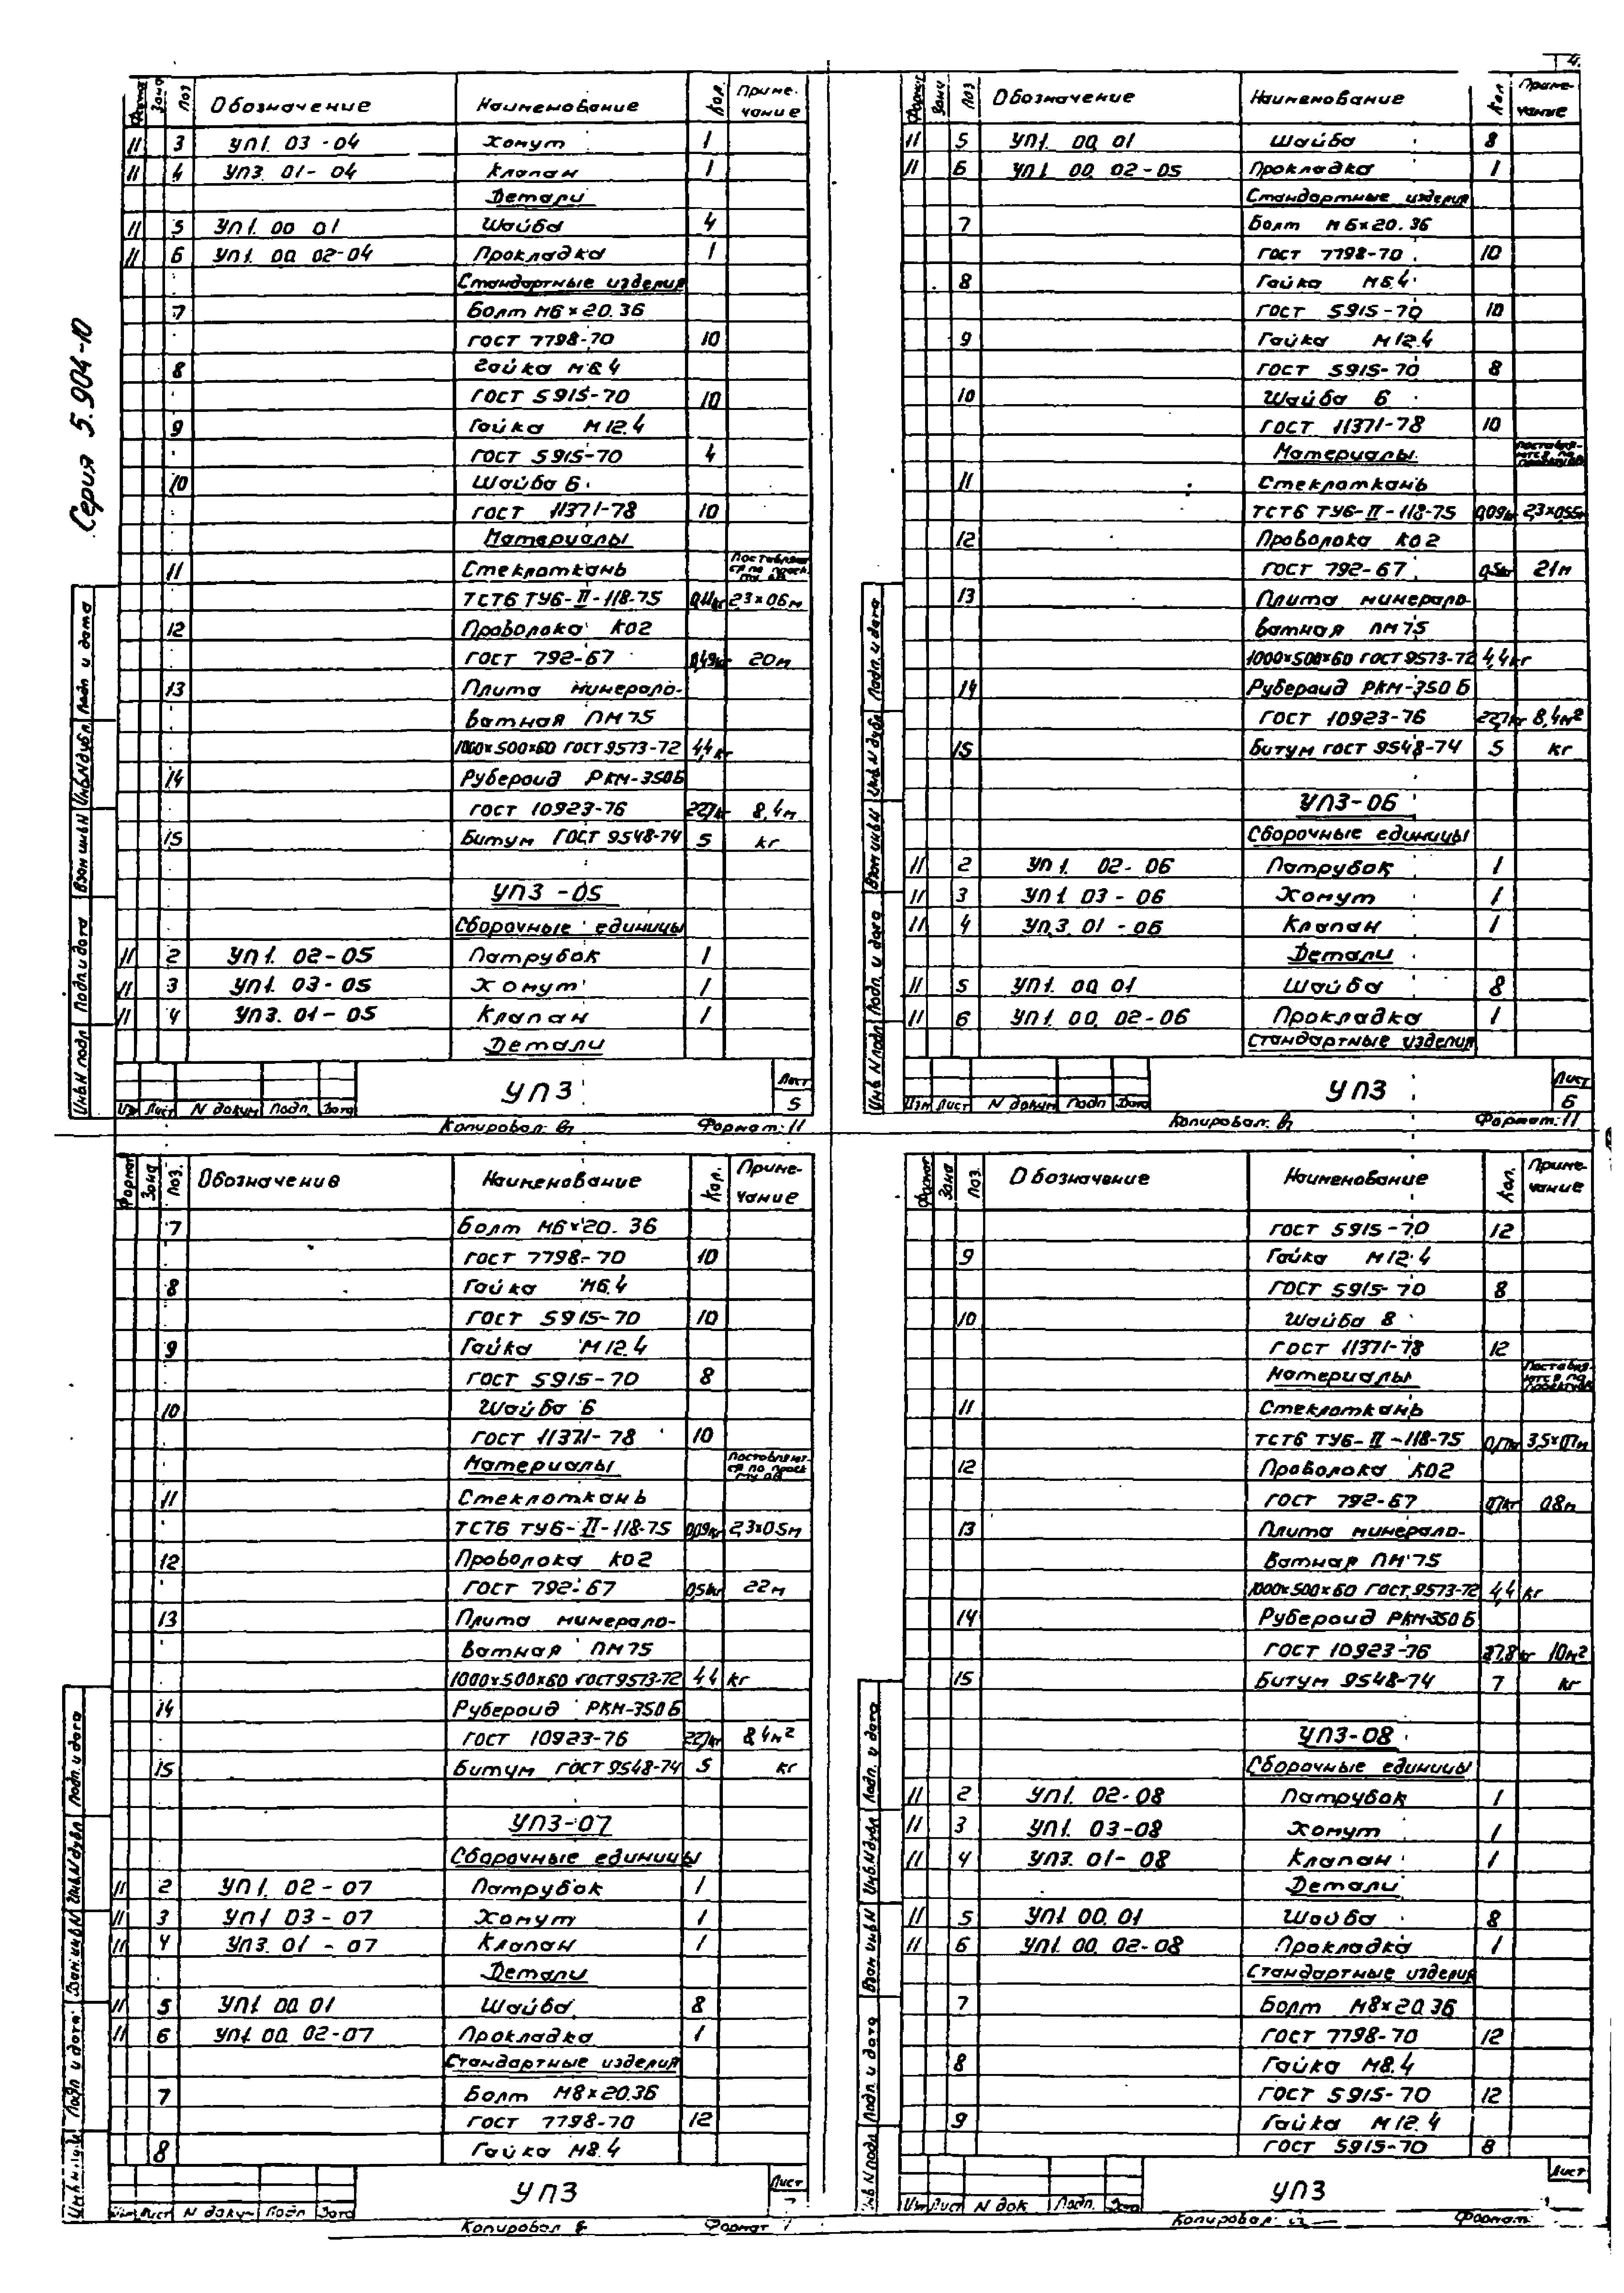 4.
Серия 5.904-10
Формат Зона Поз Обозначение Наименование Кол. Приме-
чание
11 3 УП1. 03-04 Хомут 1
11 4 УП3. 01-04 Клапан 1
Детали
11 5 УП1. 00 01 Шайба 4
11 6 УП1. 00. 02-04 Прокладка 1
Стандартные изделия
7 Болт М6×20.36
ГОСТ 7798-70 10
8 Гайка М6.4
ГОСТ 5915-70 10
9 Гайка М12.4
ГОСТ 5915-70 4
10 Шайба 6
ГОСТ 11371-78 10
Материалы
11 Стеклоткань
ТСТ6 ТУ6-II-118-75 0,11кг 2,3×0,6м
12 Проволока КО2
ГОСТ 792-67 0,49кг 20м
13 Плита минерало-
ватная ПМ75
1000×500×60 ГОСТ 9573-72 4,4кг
14 Рубероид РКМ-350Б
ГОСТ 10923-76 22,7кг 8,4м
15 Битум ГОСТ 9548-74 5 кг
УП3-05
Сборочные единицы
11 2 УП1. 02-05 Патрубок 1
11 3 УП1. 03-05 Хомут 1
11 4 УП3. 01-05 Клапан 1
Детали
Изм Лист N докум Подп. Дата
УП3
Лист
5
Копировал: Формат: 11
Инв.N подл Подп. и дата Взам инв.N Инв.N дубл. Подп и дата
Формат Зона Поз Обозначение Наименование Кол Приме-
чание
11 5 УП1. 00. 01 Шайба 8
11 6 УП1. 00. 02-05 Прокладка 1
Стандартные изделия
7 Болт М6×20.36
ГОСТ 7798-70 10
8 Гайка М6.4
ГОСТ 5915-70 10
9 Гайка М12.4
ГОСТ 5915-70 8
10 Шайба 6
ГОСТ 11371-78 10
Материалы
11 Стеклоткань
ТСТ6 ТУ6-II-118-75 0,09кг 2,3×0,55м
12 Проволока КО2
ГОСТ 792-67 0,5кг 21м
13 Плита минерало-
ватная ПМ75
1000×500×60 ГОСТ 9573-72 4,4кг
14 Рубероид РКМ-350Б
ГОСТ 10923-76 22,7кг 8,4м²
15 Битум ГОСТ 9548-74 5 кг
УП3-06
Сборочные единицы
11 2 УП1. 02-06 Патрубок 1
11 3 УП1. 03-06 Хомут 1
11 4 УП.3. 01-06 Клапан 1
Детали
11 5 УП1. 00. 01 Шайба 8
11 6 УП1. 00. 02-06 Прокладка 1
Стандартные изделия
Изм Лист N докум Подп Дата
УП3
Лист
6
Копировал: Формат: 11
Инв. N подл Подп. и дата Взам инв.N Инв.N дубл. Подп. и дата
Формат Зона Поз. Обозначение Наименование Кол. Приме-
чание
7 Болт М6×20.36
ГОСТ 7798-70 10
8 Гайка М6.4
ГОСТ 5915-70 10
9 Гайка М12.4
ГОСТ 5915-70 8
10 Шайба 6
ГОСТ 11371-78 10
Материалы
11 Стеклоткань
ТСТ6 ТУ6-II-118-75 0,09кг 2,3×0,5м
12 Проволока КО2
ГОСТ 792-67 0,5кг 22м
13 Плита минерало-
ватная ПМ75
1000×500×60 ГОСТ 9573-72 4,4 кг
14 Рубероид РКМ-350Б
ГОСТ 10923-76 22,7кг 8,4м²
15 Битум ГОСТ 9548-74 5 кг
УП3-07
Сборочные единицы
11 2 УП1. 02-07 Патрубок 1
11 3 УП1 03-07 Хомут 1
11 4 УП3. 01-07 Клапан 1
Детали
11 5 УП1 00 01 Шайба 8
11 6 УП1. 00. 02-07 Прокладка 1
Стандартные изделия
7 Болт М8×20.36
ГОСТ 7798-70 12
8 Гайка М8.4
Лист N докум Подп Дата
УП3
Лист
7
Копировал Формат
Подп и дата Взам. инв.N Инв.N дубл Подп. и дата
Формат Зона Поз. Обозначение Наименование Кол. Приме-
чание
ГОСТ 5915-70 12
9 Гайка М12.4
ГОСТ 5915-70 8
10 Шайба 8
ГОСТ 11371-78 12
Материалы
11 Стеклоткань
ТСТ6 ТУ6-II-118-75 3,5×0,7м
12 Проволока КО2
ГОСТ 792-67 0,7кг 08м
13 Плита минерало-
ватная ПМ75
1000×500×60 ГОСТ 9573-72 4,4 кг
14 Рубероид РКМ-350Б
ГОСТ 10923-76 10м²
15 Битум 9548-74 7 кг
УП3-08
Сборочные единицы
11 2 УП1. 02-08 Патрубок 1
11 3 УП1. 03-08 Хомут 1
11 4 УП3. 01-08 Клапан 1
Детали
11 5 УП1 00. 01 Шайба 8
11 6 УП1. 00. 02-08 Прокладка 1
Стандартные изделия
7 Болт М8×20.36
ГОСТ 7798-70 12
8 Гайка М8.4
ГОСТ 5915-70 12
9 Гайка М12.4
ГОСТ 5915-70 8
Изм Лист N док. Подп. Дата
УП3
Лист
Копировал: Формат
Инв N подл Подп. и дата Взам инв N Инв.N дубл Подп. и дата